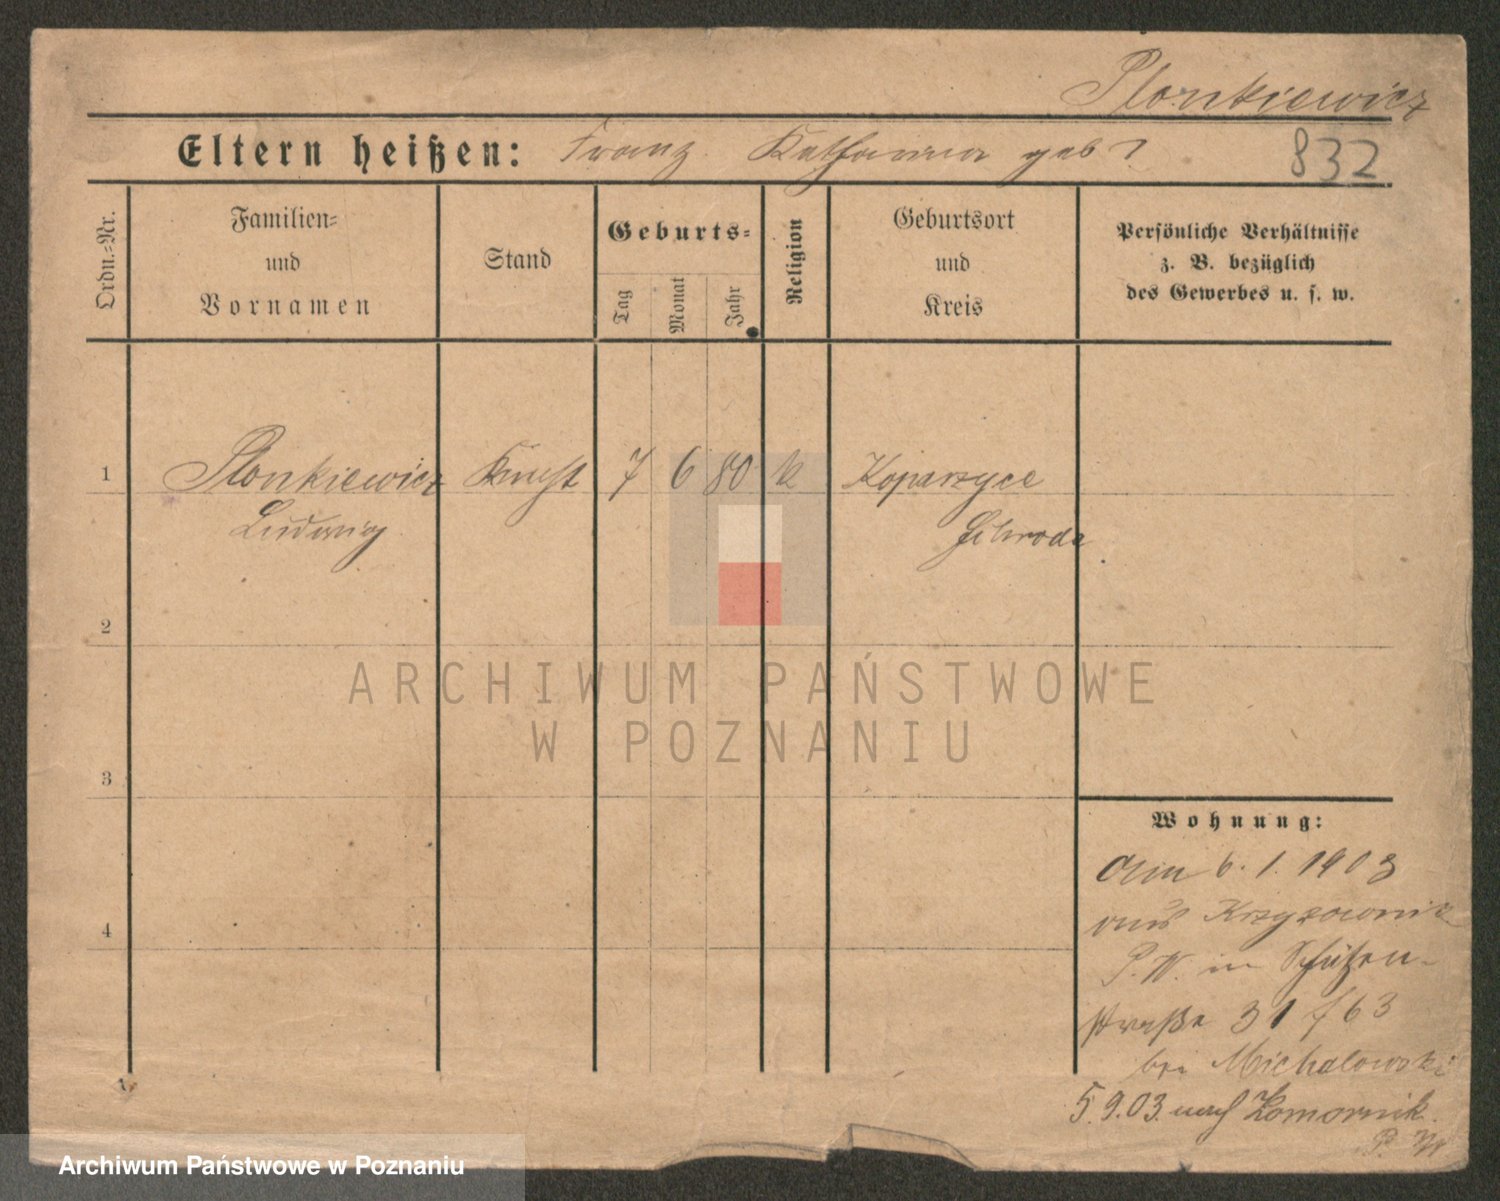 Plonkiewicz
Eltern heißen: Franz Katharina geb ?
832
Ordn.-Nr.
Familien-
und
Vornamen
Stand
Geburts-
Tag
Monat
Jahr
Religion
Geburtsort
und
Kreis
Persönliche Verhältnisse
z. B. bezüglich
des Gewerbes u. s. w.
1 Plonkiewicz Knecht 7 6 80 k
Ludwig
Schroda
2
3
4
Wohnung:
Am 6. 1. 1903
aus
P. W. in Schützen-
straße 31
bei Michalowski
5.9.03. nach Komornik
P. W
ARCHIWUM PAŃSTWOWE
W POZNANIU
Archiwum Państwowe w Poznaniu